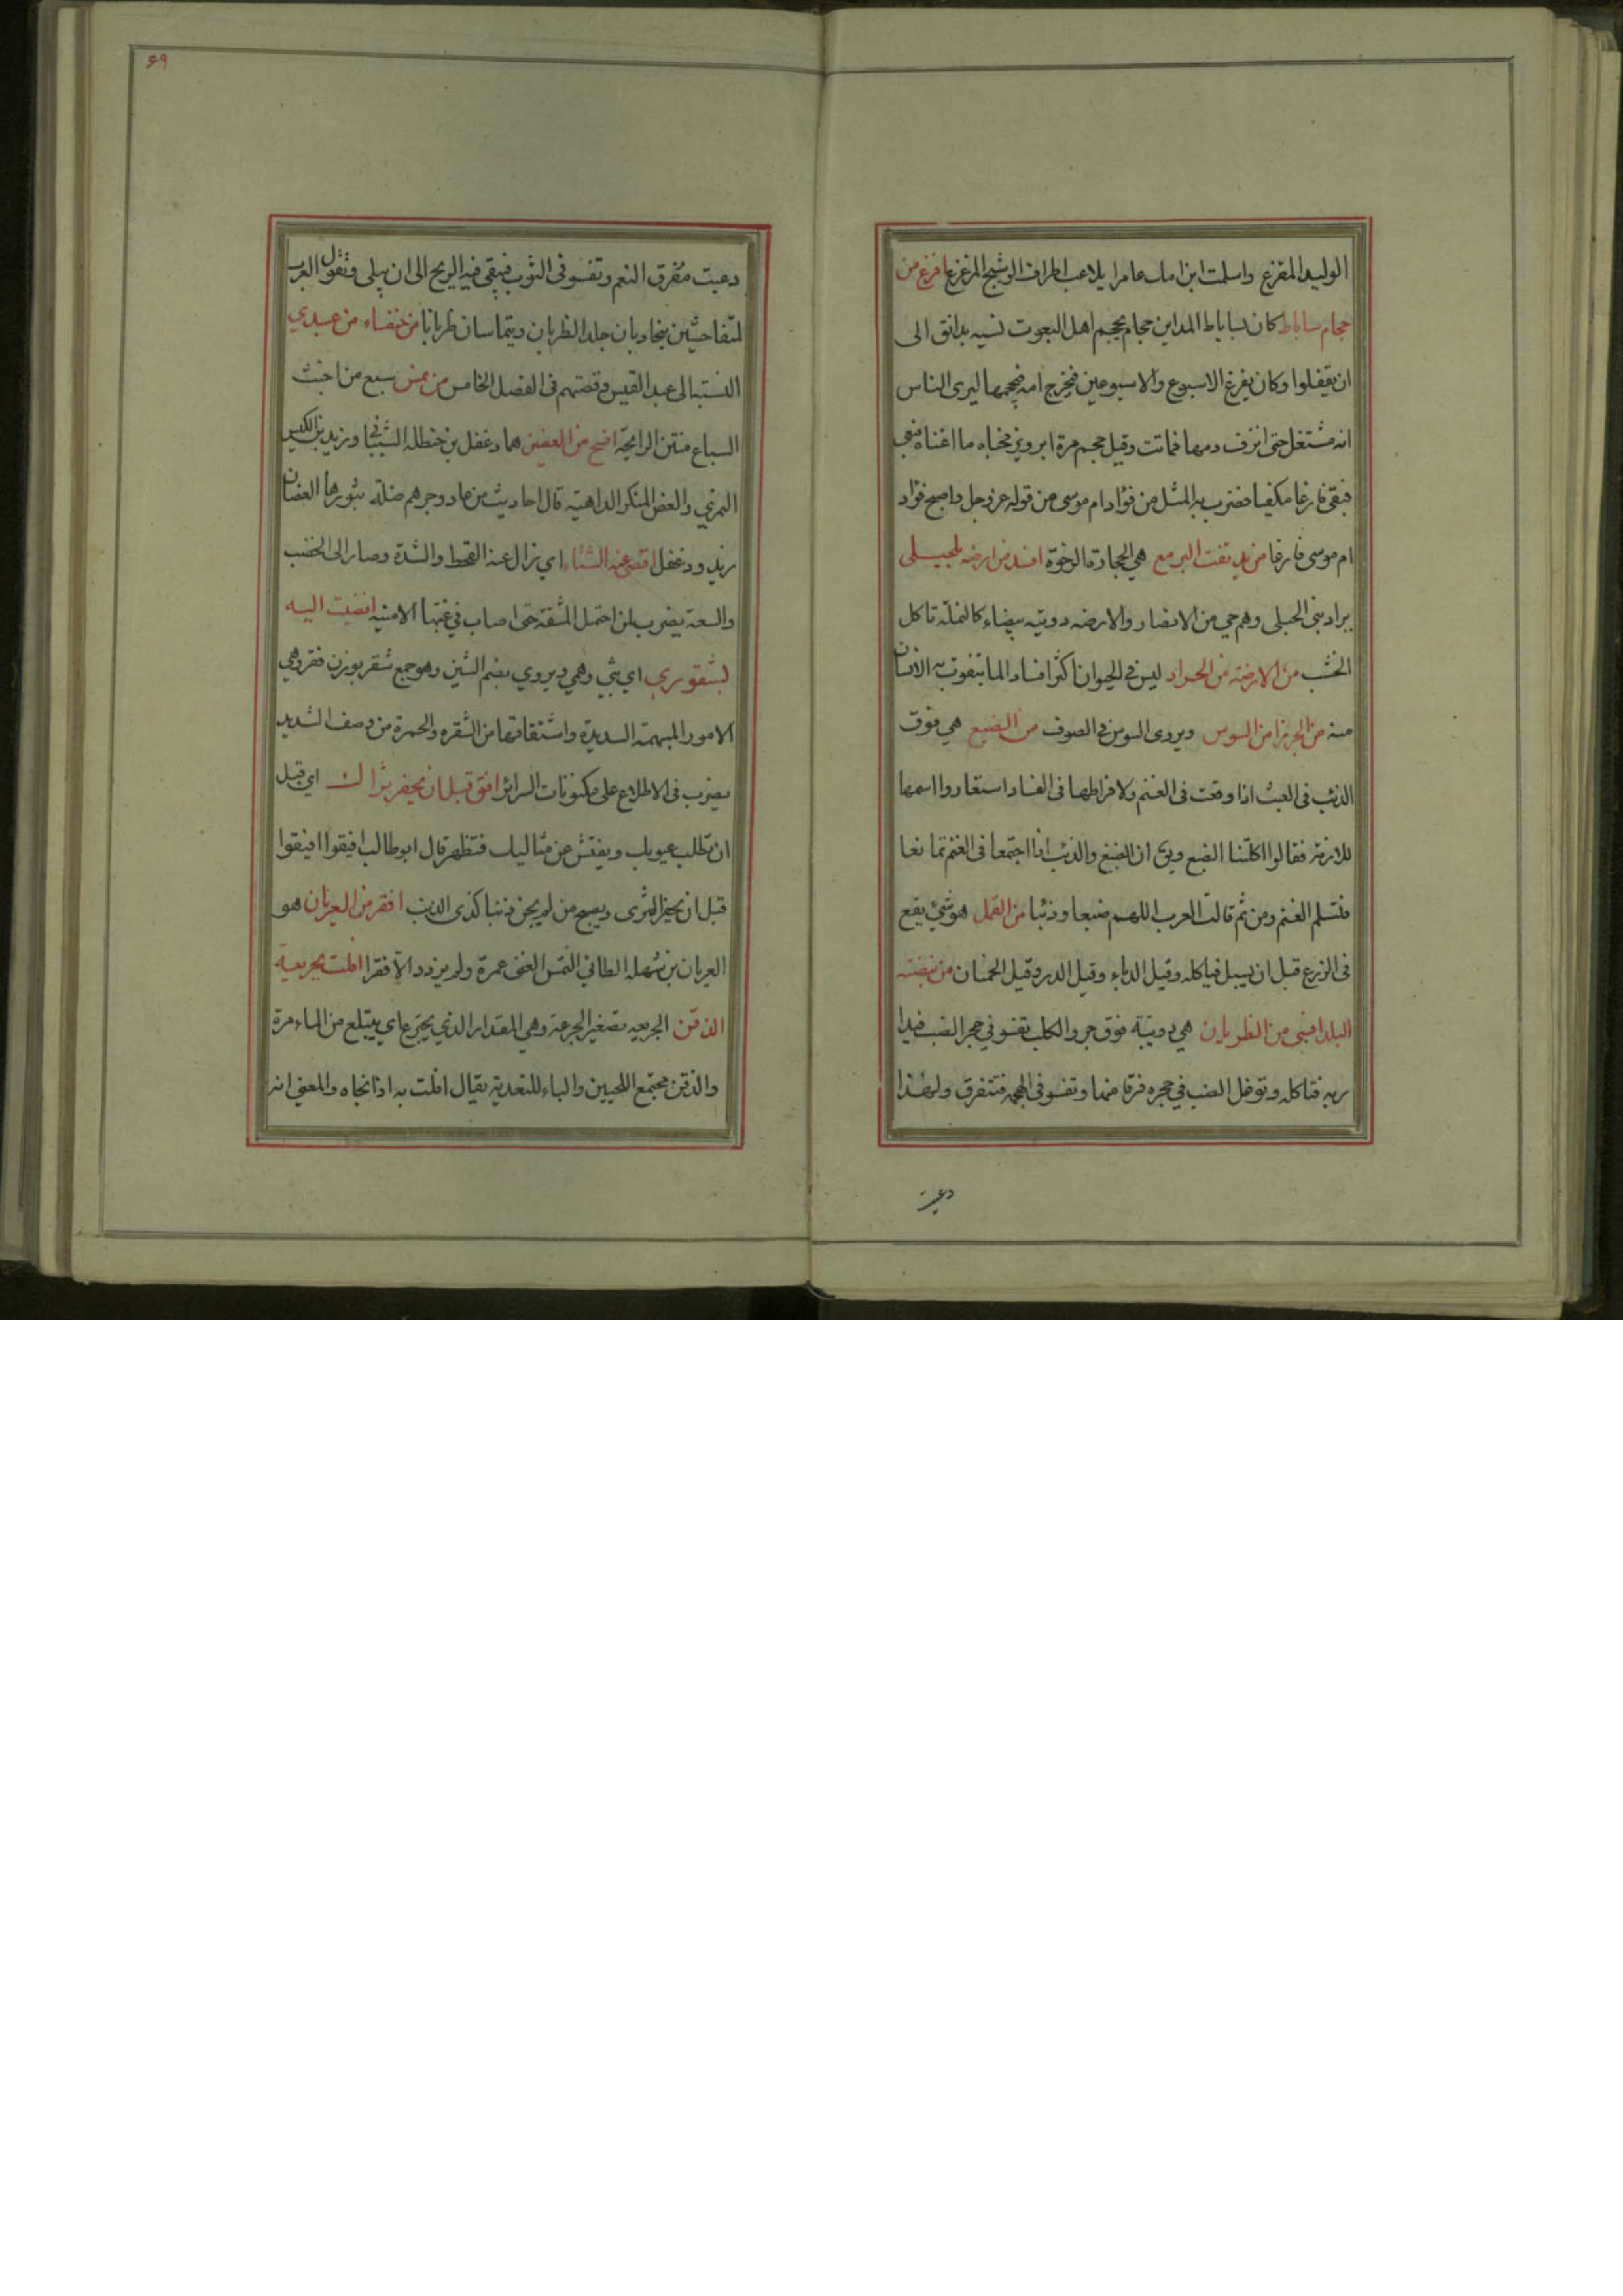 الوليد المقزع واسلمت ابن امك عامرا يلاعب اطراف الوشيج المزعزع افرغ من
حجام ساباط كان بساباط المداين حجام يحجم اهل البعوث نسيه بدانق الى
ان يقفلوا وكان يفرغ الاسبوع والاسبوعين فيخرج امه فيحجمها ليرى الناس
انه مشتغل حتى انزف دمها فماتت وقيل حجم مرة ابرويز فحباه ما اغناه
فبقى فارغا مكفيا فضرب به المثل من فؤاد ام موسى من قوله عز وجل واصبح فؤاد
ام موسى فارغا من يد تفت اليرمع هي الحجارة الرخوة افسد من ارضه بلحبلى
يراد بنى الحبلى وهم حي من الانصار والارضه دويبه بيضاء كالنملة تاكل
الخشب من الارضة من الجراد ليس في الحيوان اكثر افسادا لما يتقوت به الانسان
منه من الجرذ من السوس ويروى السوس في الصوف من الضبع هي فوق
الذئب فى العيث اذا وقعت فى الغنم ولافراطها فى الفساد استعاروا اسمها
للازمة فقالوا اكلتنا الضبع ويق ان الضبع والذئب اذا اجتمعا فى الغنم تمانعا
فتسلم الغنم ومن ثم قالت العرب اللهم ضبعا وذئبا من القمل هو شئ يقع
فى الزرع قبل ان يسبل فياكله وقيل الدباء وقيل الدر وقيل الحمنان من بيضته
البلد افسى من الظربان هي دويبة فوق جرو الكلب تفسو في حجر الضب فيدا
ربه فتاكله وتوغل الضب في حجره فرقا منها وتفسو فى الهجمه فتتفرق ولهذا
دعيت
٦٩
دعيت مفرق النعم وتفسو فى الثوب فيبقى فيه الريح الى ان يبلى وتقول العرب
لمتفاحشين يتجاذبان جلد الظربان ويتماسان ظربانا من خنفساء من عبدي
النسبة الى عبد القيس وقصتهم فى الفصل الخامس من نمس سبع من اخبث
السباع منتن الرايحة افصح من العضين هما دغفل بن حنظله الشيبانى وزيد بن الكيس
النمري والعض المنكر الداهية قال احاديث من عاد وجرهم ضلة يثورها العضان
زيد ودغفل افصى عنه الشتاء اي زال عنه القحط والشدة وصار الى الخصب
والسعة يضرب لمن احتمل المشقة حتى اصاب في غبها الامنية افضيت اليه
بشقوري اي بثي وهمي ويروي بضم الشين وهو جمع شقر بوزن فقر وهي
الامور المبهمة السديدة واشتقاقها من الشقره والحمرة من وصف الشديد
يضرب فى الاطلاع على مكنونات السرائر افق قبل ان يحفر ثراك اي قبل
ان تطلب عيوبك ويفتش عن مثاليك فتظهر قال ابو طالب افيقوا افيقوا
قبل ان يحفر الثرى ويصبح من لم يجن ذنبا كذى الذنب افقر من العريان هو
العريان بن شهله الطائي التمس الغنى عمرة ولم يزدد الا فقرا افلت بجريعة
الذقن الجريعه تصغير الجرعة وهي المقدار الذي يجترع اي يبتلع من الماء مرة
والذقن مجتمع اللحيين والباء للتعدية يقال افلت به اذا نجاه والمعنى انه